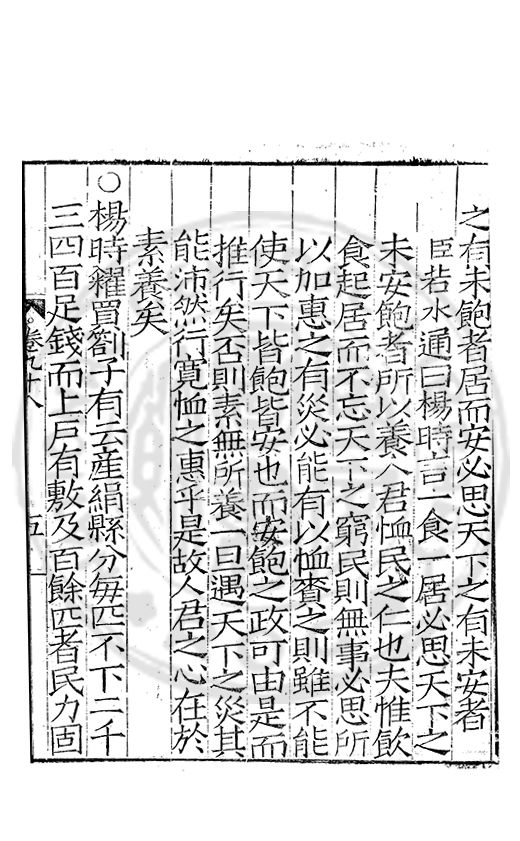 之有未飽者居而安必思天下之有未安者
臣若水通曰楊時言一食一居必思天下之
未安飽者所以養人君恤民之仁也夫惟飲
食起居而不忘天下之窮民則無事必思所
以加惠之有災必能有以恤賚之則雖不能
使天下皆飽皆安也而安飽之政可由是而
推行矣否則素無所養一旦遇天下之災其
能沛然行寛恤之惠乎是故人君之心在於
素養矣
○楊時糴買劄子有云產絹縣分每匹不下二千
三四百足錢而上戶有敷及百餘匹者民力固
卷九十八 五